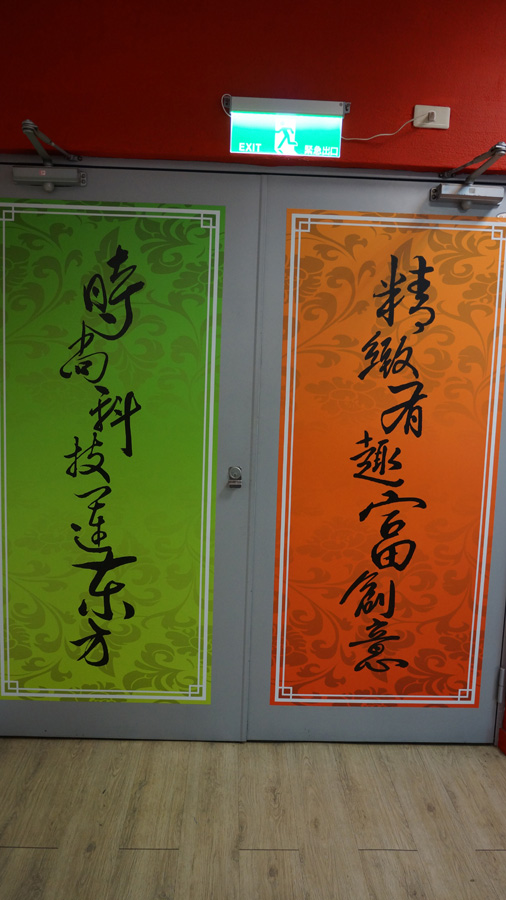 EXIT 緊急出口
精緻有趣富創意
時尚科技蓮東方